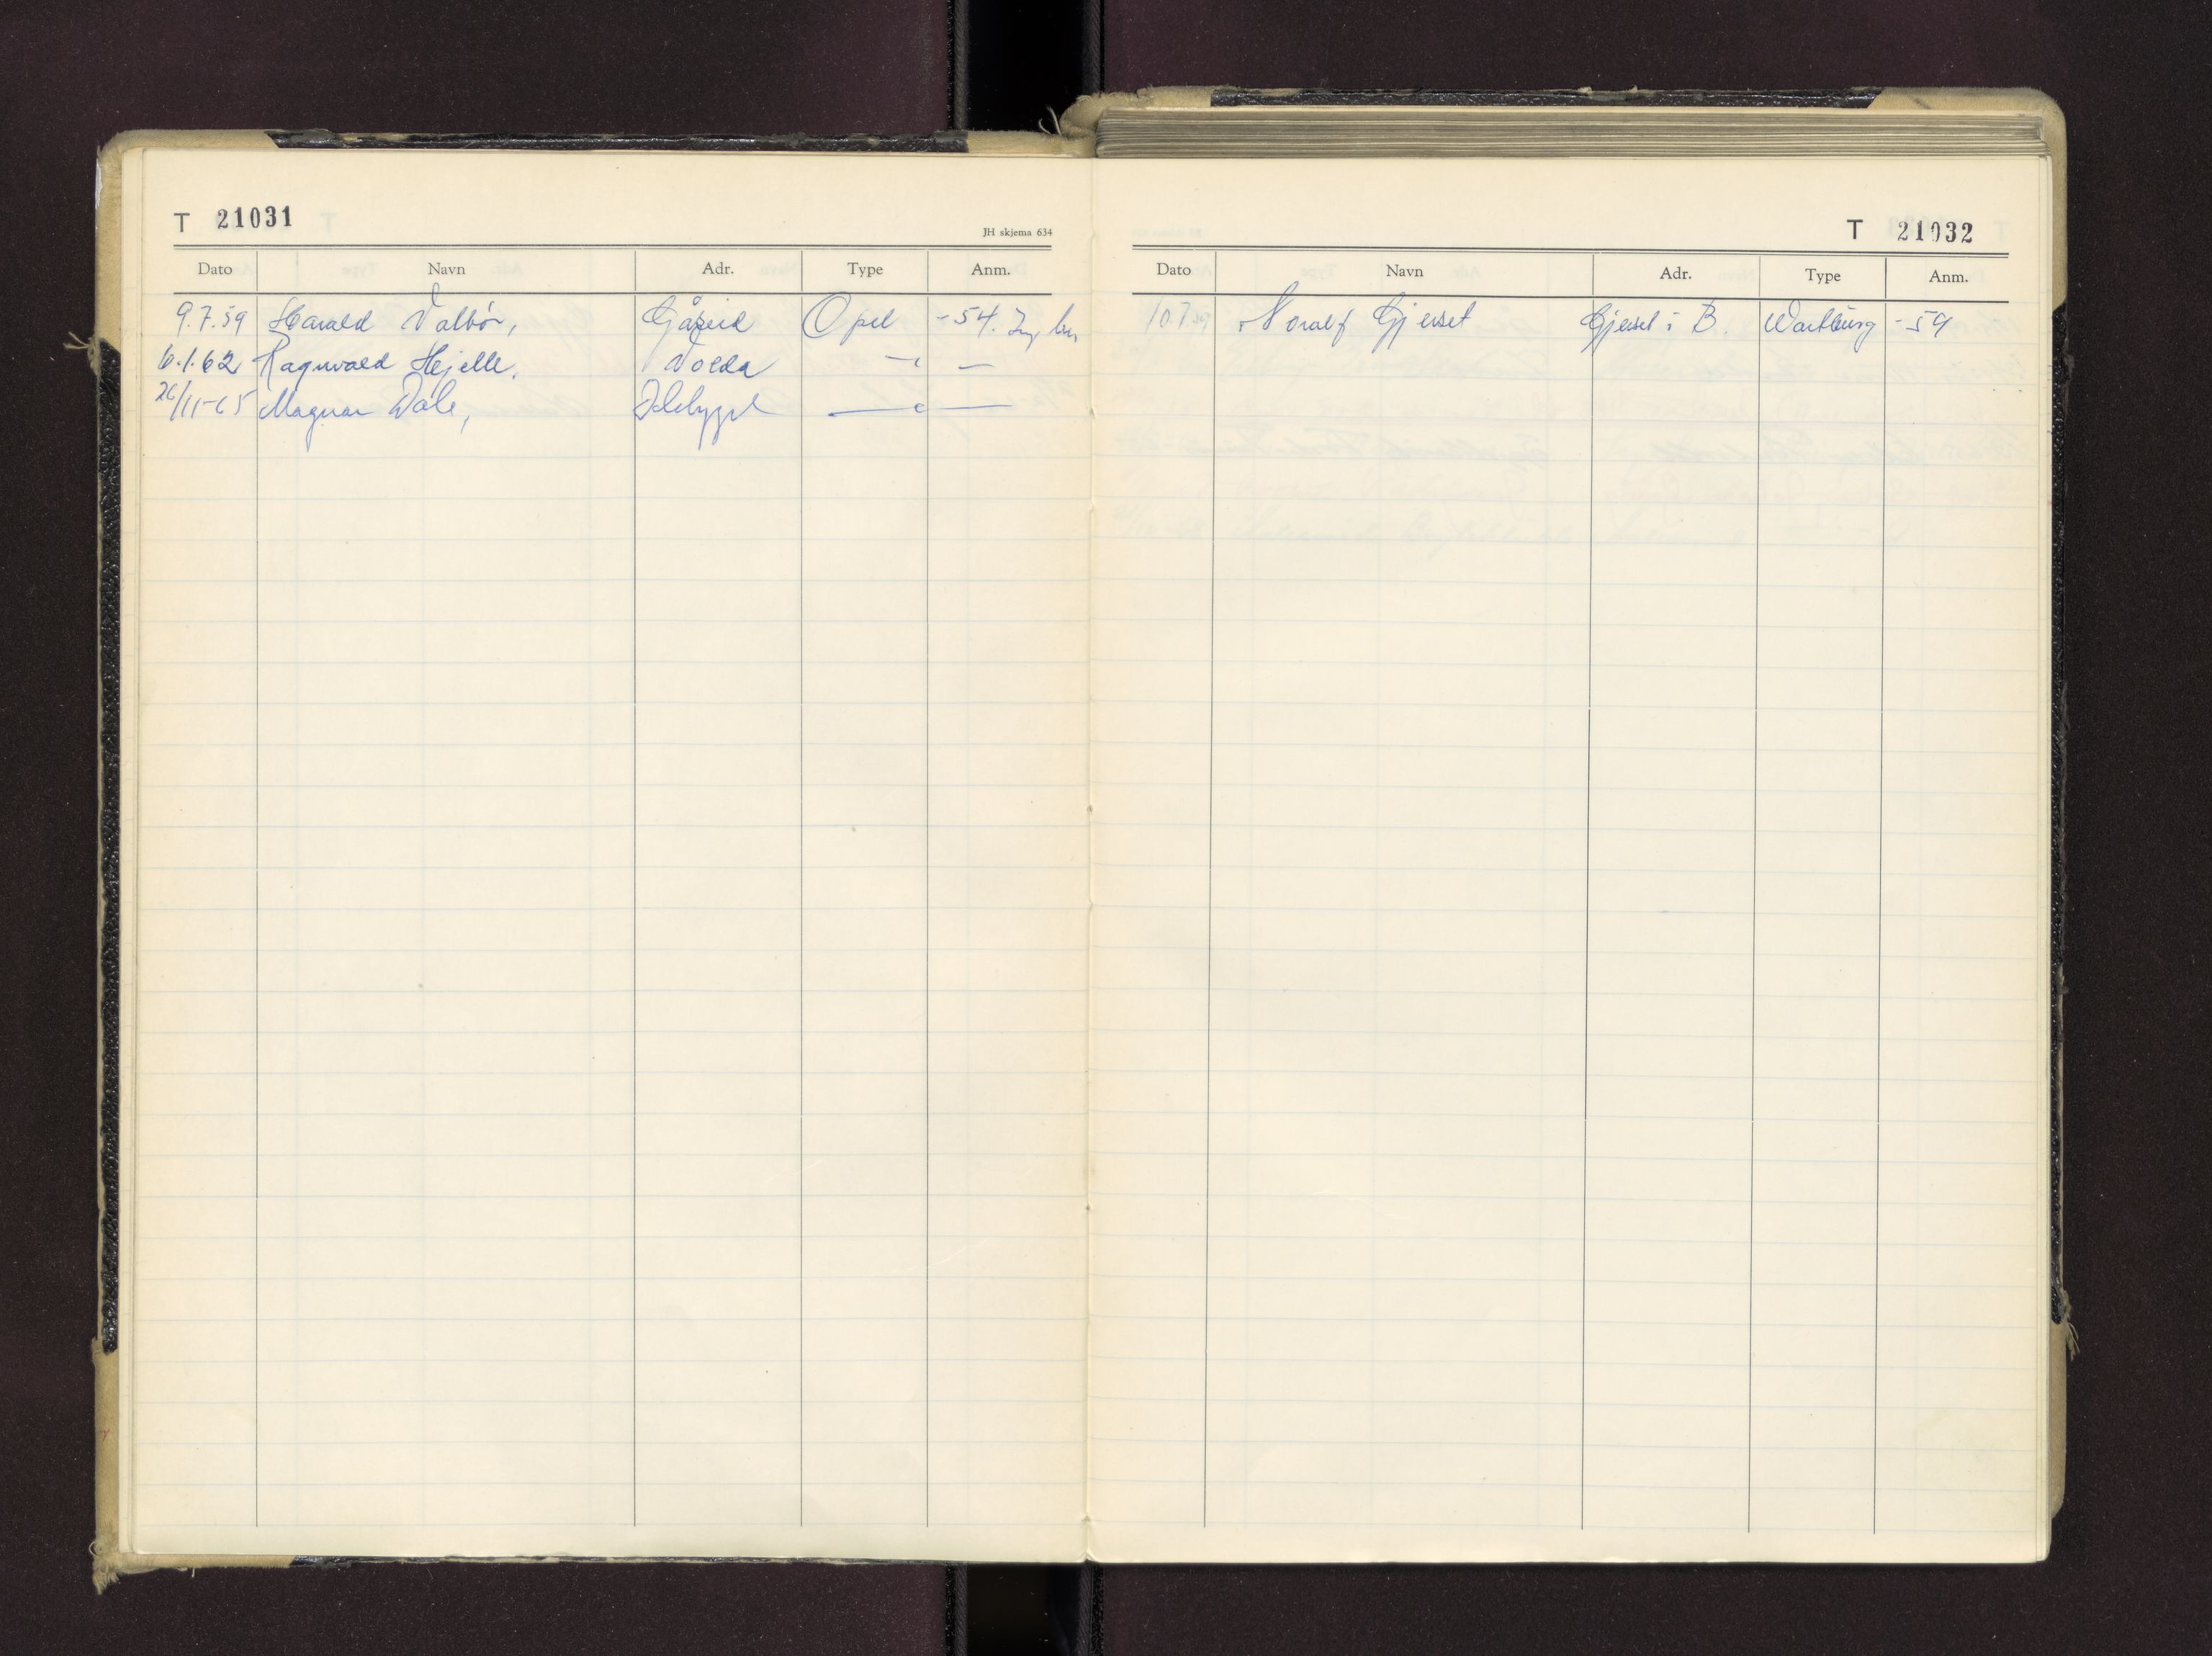 T 21031
JH skjema 634
Dato Navn Adr. Type Anm.
9.7.59 Harald Valbör, Gåseid Opel -54.
6.1.62 Ragnvald Hjelle. Volda — " —
26/11-65 Magnar Dale, — " —
T 21032
Dato Navn Adr. Type Anm.
10.7.59 Noralf Gjerset Gjerset i B. Wartburg -59